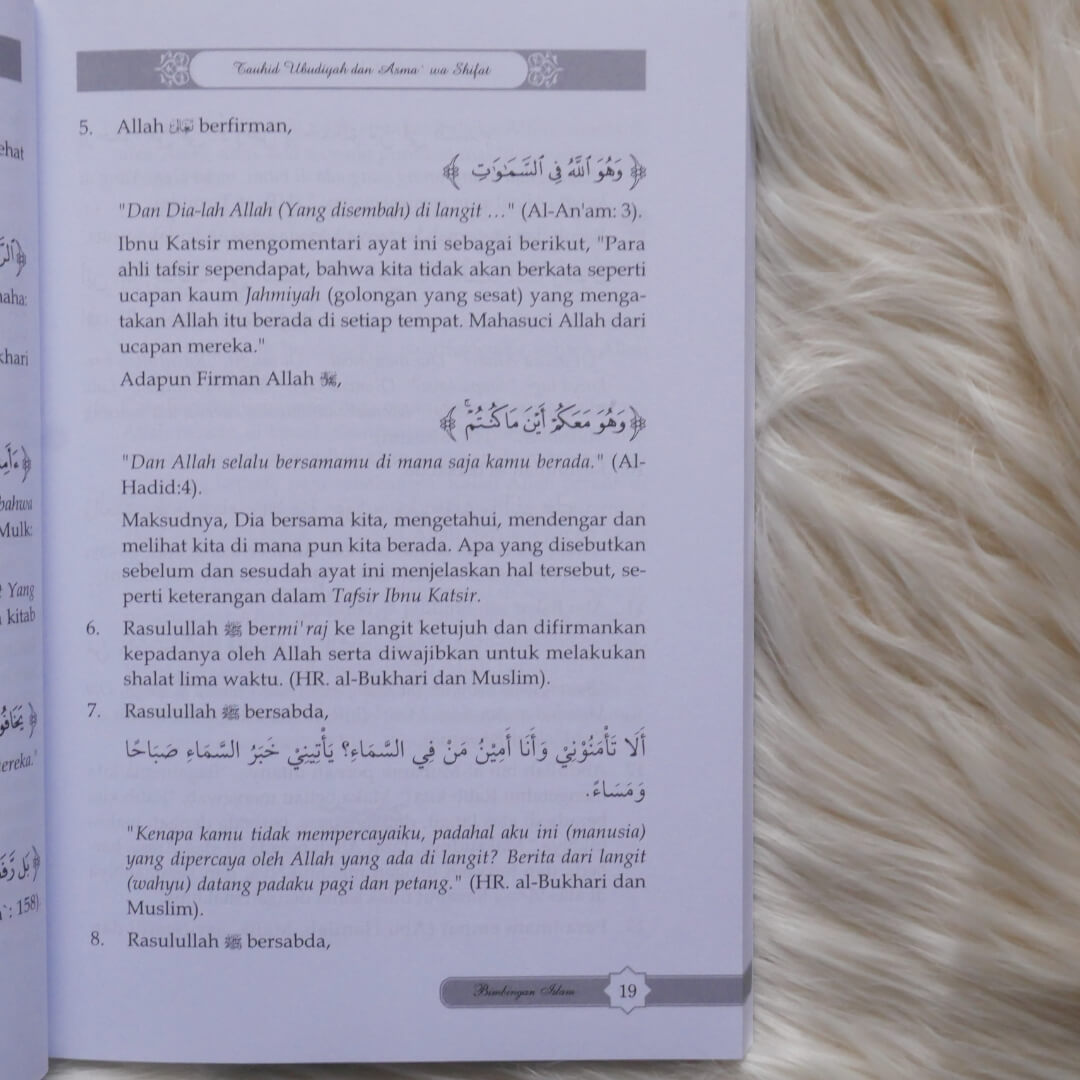 ehat
naha:
khari
bahwa
Mulk:
Yang
kitab
ereka."
: 158)
Tauhid Ubudiyah dan Asma` wa Shifat
5. Allah berfirman,
﴿ وَهُوَ ٱللَّهُ فِي ٱلسَّمَٰوَٰتِ ﴾
"Dan Dia-lah Allah (Yang disembah) di langit …" (Al-An'am: 3).
Ibnu Katsir mengomentari ayat ini sebagai berikut, "Para
ahli tafsir sependapat, bahwa kita tidak akan berkata seperti
ucapan kaum Jahmiyah (golongan yang sesat) yang menga-
takan Allah itu berada di setiap tempat. Mahasuci Allah dari
ucapan mereka."
Adapun Firman Allah ﷻ,
﴿ وَهُوَ مَعَكُمْ أَيْنَ مَا كُنتُمْ ۚ ﴾
"Dan Allah selalu bersamamu di mana saja kamu berada." (Al-
Hadid:4).
Maksudnya, Dia bersama kita, mengetahui, mendengar dan
melihat kita di mana pun kita berada. Apa yang disebutkan
sebelum dan sesudah ayat ini menjelaskan hal tersebut, se-
perti keterangan dalam Tafsir Ibnu Katsir.
6. Rasulullah ﷺ bermi'raj ke langit ketujuh dan difirmankan
kepadanya oleh Allah serta diwajibkan untuk melakukan
shalat lima waktu. (HR. al-Bukhari dan Muslim).
7. Rasulullah ﷺ bersabda,
أَلَا تَأْمَنُوْنِيْ وَأَنَا أَمِيْنُ مَنْ فِي السَّمَاءِ؟ يَأْتِينِيْ خَبَرُ السَّمَاءِ صَبَاحًا
وَمَسَاءً.
"Kenapa kamu tidak mempercayaiku, padahal aku ini (manusia)
yang dipercaya oleh Allah yang ada di langit? Berita dari langit
(wahyu) datang padaku pagi dan petang." (HR. al-Bukhari dan
Muslim).
8. Rasulullah ﷺ bersabda,
Bimbingan Islam 19